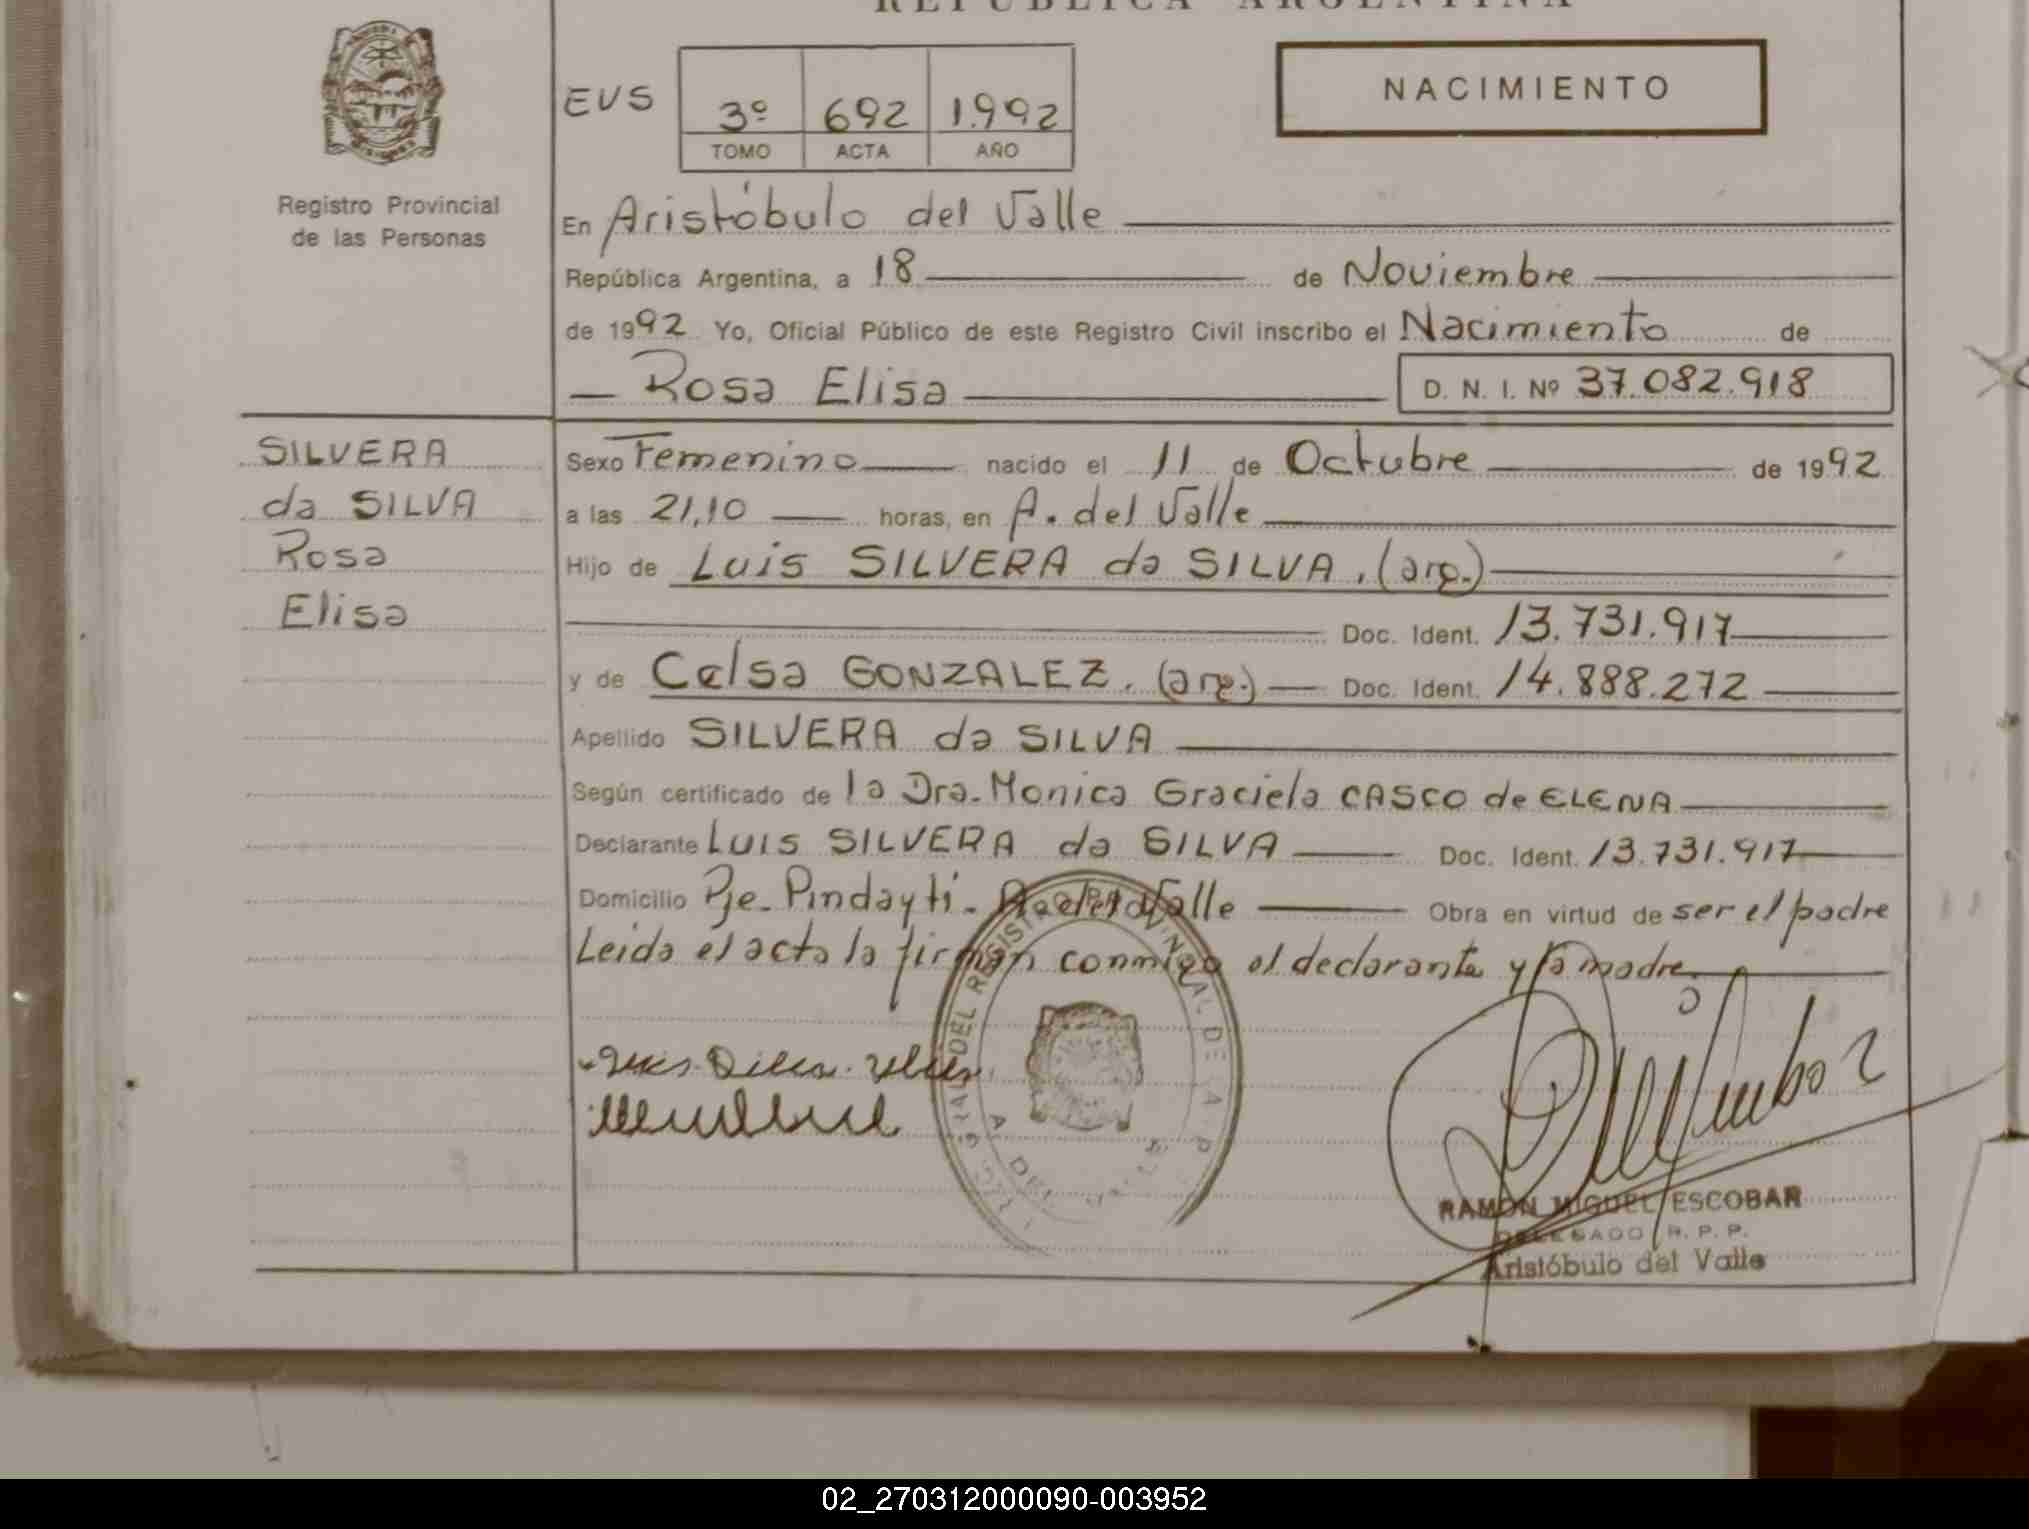 REPUBLICA ARGENTINA
NACIMIENTO
EVS 3º 692 1.992
TOMO ACTA AÑO
Registro Provincial
de las Personas
En Aristóbulo del Valle
República Argentina, a 18 de Noviembre
de 1992 Yo, Oficial Público de este Registro Civil inscribo el Nacimiento de
Rosa Elisa D. N. I. Nº 37.082.918
SILVERA
da SILVA
Rosa
Elisa
Sexo Femenino nacido el 11 de Octubre de 1992
a las 21,10 horas, en A. del Valle
Hijo de Luis SILVERA da SILVA. (arg.)
Doc. Ident. 13.731.917
y de Celsa GONZALEZ. (arg.) Doc. Ident. 14.888.272
Apellido SILVERA da SILVA
Según certificado de la Dra. Monica Graciela CASCO de ELENA
Declarante LUIS SILVERA da SILVA Doc. Ident. 13.731.917
Domicilio Pje. Pindayti. A. del Valle Obra en virtud de ser el padre
Leida el acta la firman conmigo el declarante y la madre.
DEL REGISTRO PROVINCIAL DE
A. DEL VALLE
RAMON MIGUEL ESCOBAR
DELEGADO R. P. P.
Aristóbulo del Valle
02_270312000090-003952